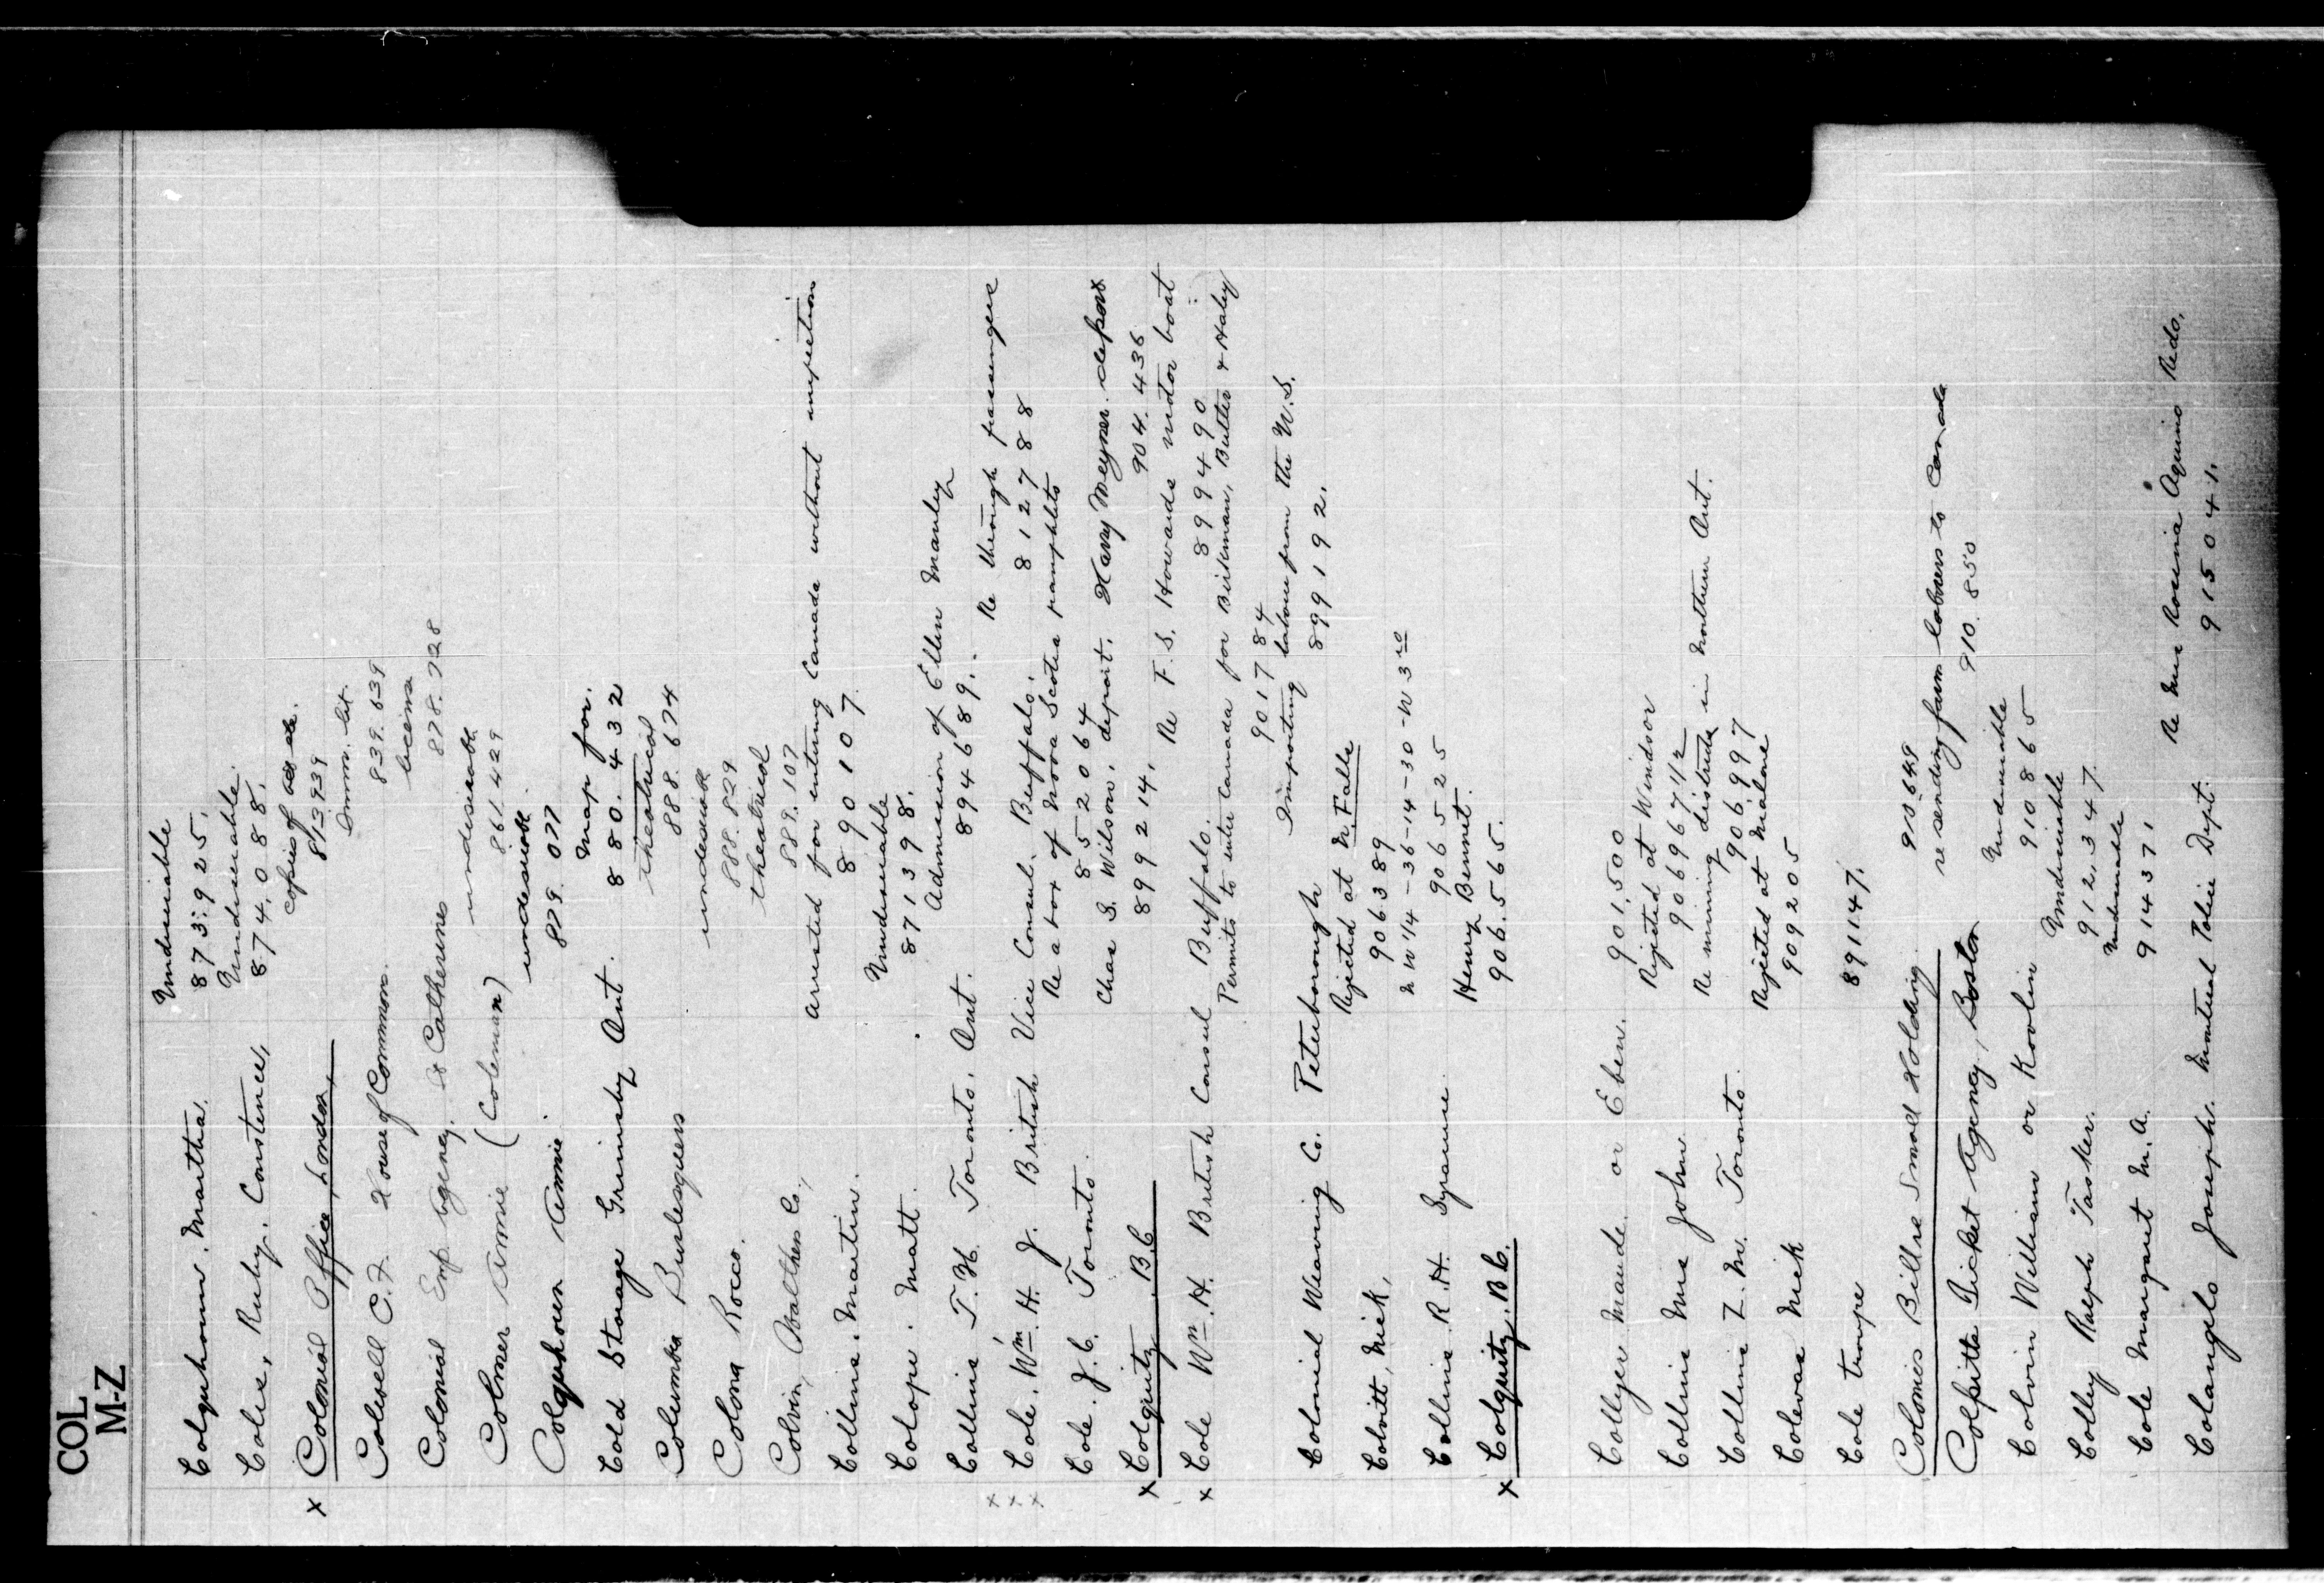 COL
M-Z
Colquhoun. Martha. Undesirable
873.925.
Coles, Ruby. Constence, Undesirable.
874.088.
x Colonial Office, London, copies of
813939
Colwell C.F. House of Commons. Imm. lit.
839.639
Colonial Emp Agency. St Catherines license
878.728
Colmer Annie (Coleman) undesirable
861429
Colquhoun Annie undesirable
879.077
Cold Storage Grimsby Ont. map for.
880.432
Columbia Burlesquers theatrical
888.674
Colona Rocco. undesirable
888.829
Colvin, Walthers Co., theatrical
889.107
Collins. Martin. arrested for entering Canada without inspection
890107
Colope. Matt. Undesirable
871398.
Collins T.H. Toronto. Ont. Admission of Ellen Manley
894689.
x Cole. Wm. H. J. British Vice Consul. Buffalo. Re through passengers
812788
x Cole. J.C. Toronto. Re a box of Nova Scotia pamphlets
852064
x Colquitz. B.C Chas S. Wilson, deport. Harry Meyner deport
899214. 904.436
x Cole Wm. H. British Consul Buffalo. Re F.S. Howards motor boat
899490
Permits to enter Canada for Birkman, Butler & Haley
901784
Colonial Weaving Co. Peterborough Importing labour from the U.S.
899192.
Colvitt, Nick, Rejected at N. Falls
906389
Collins R.H. Syracuse N W 14-36-14-30-W 3rd
906525
x Colquitz, B.C. Henry Bennet.
906.565.
Collyer Maude. or Eben. 901,500
Collins Mrs John Rejected at Windsor
906967 1/2
Collins Z. M. Toronto. Re mining districts in Northern Ont.
906997
Colevas Nick Rejected at Malone
909205
Cole troupe 891147.
Colonies Bill re Small Holding. 910649
Colpitts Ticket Agency, Boston re sending farm laborers to Canada
910.850
Colvin William or Koolin Undesirable
910865
Colley Ralph Tasker. Undesirable
912,347.
Cole Margaret M.A. Undesirable
914371
Colangelo Joseph. Montreal Police Dept. Re Mrs Rosina Aquino Redo.
915041.